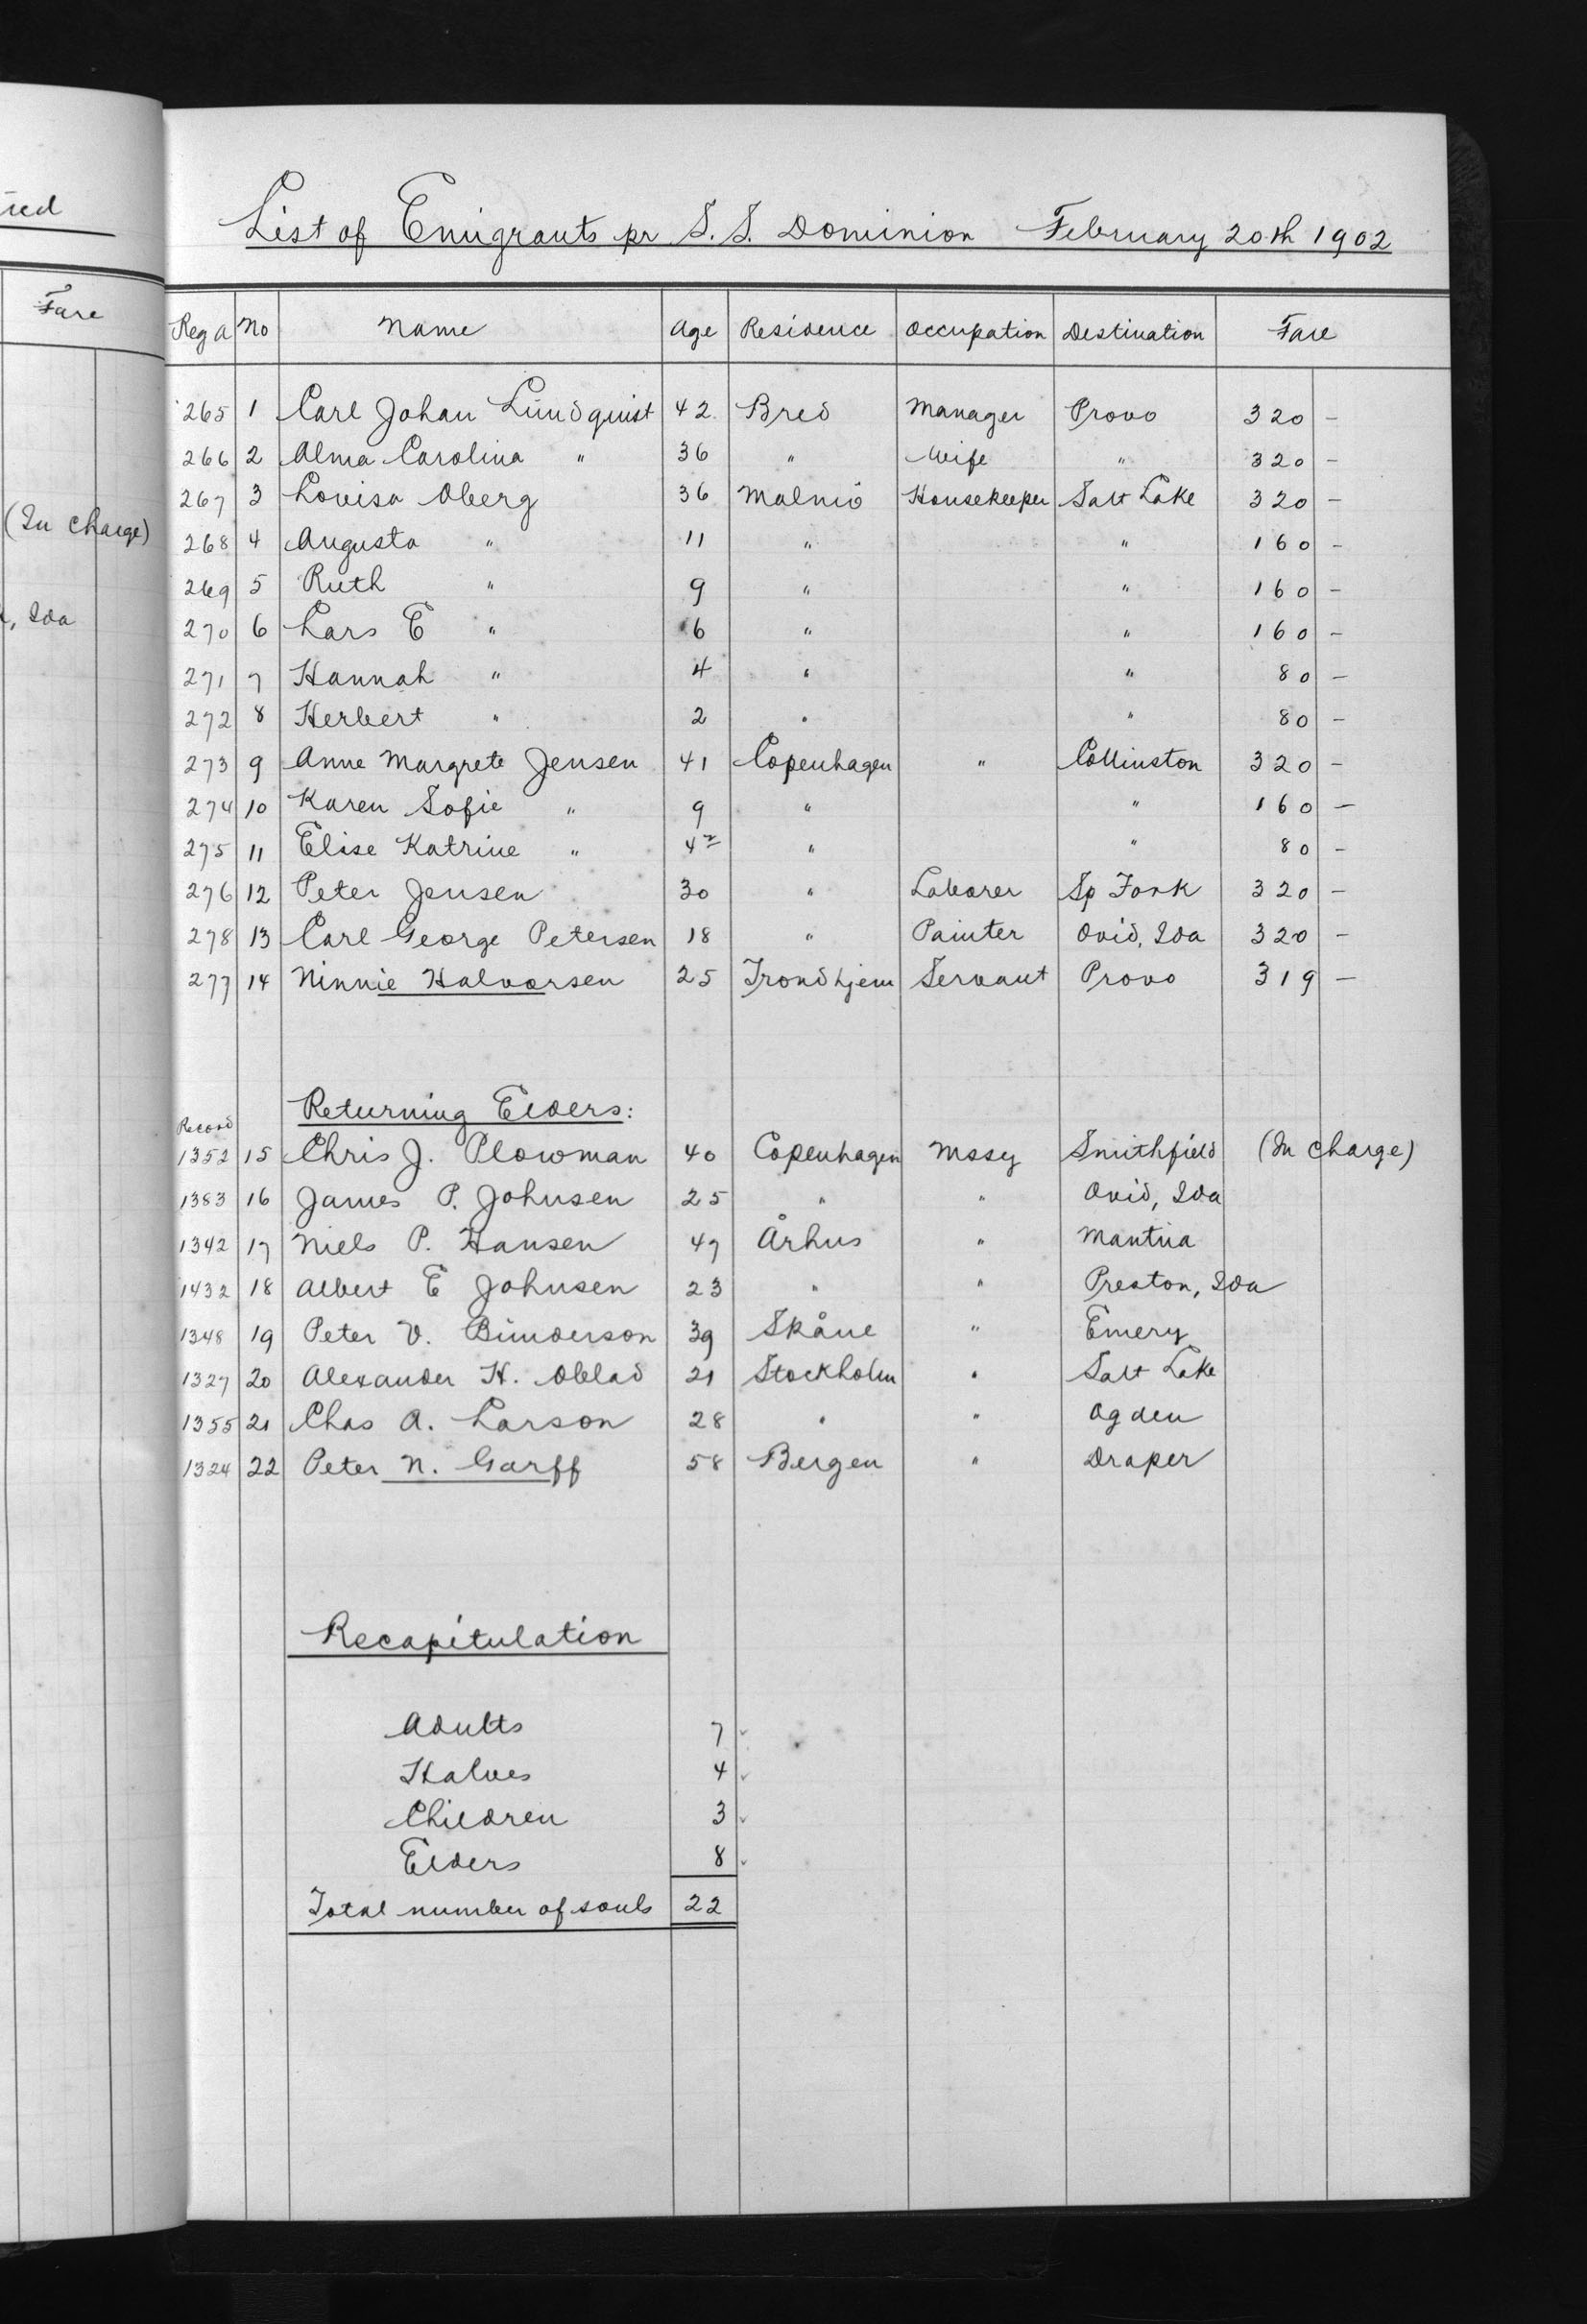 red
Fare
(In charge)
, Ida
List of Emigrants pr S.S. Dominion February 20th 1902
Reg a No Name Age Residence Occupation Destination Fare
265 1 Carl Johan Lundquist 42 Bred Manager Provo 320 -
266 2 Alma Carolina " 36 " Wife " 320 -
267 3 Lovisa Oberg 36 Malmö Housekeeper Salt Lake 320 -
268 4 Augusta " 11 " " 160 -
269 5 Ruth " 9 " " 160 -
270 6 Lars E " 6 " " 160 -
271 7 Hannah " 4 " " 80 -
272 8 Herbert " 2 " " 80 -
273 9 Anne Margrete Jensen 41 Copenhagen " Collinston 320 -
274 10 Karen Sofie " 9 " " 160 -
275 11 Elise Katrine " 4 " " 80 -
276 12 Peter Jensen 30 " Laborer Sp Fork 320 -
278 13 Carl George Petersen 18 " Painter Ovid, Ida 320 -
277 14 Ninnie Halvorsen 25 Trondhjem Servant Provo 319 -
Returning Elders:
Record
1352 15 Chris J. Plowman 40 Copenhagen Mssy Smithfield (In charge)
1383 16 James P. Johnsen 25 " " Ovid, Ida
1342 17 Niels P. Hansen 47 Århus " Mantua
1432 18 Albert E Johnsen 23 " " Preston, Ida
1348 19 Peter V. Bunderson 39 Skåne " Emery
1327 20 Alexander H. Oblad 21 Stockholm " Salt Lake
1355 21 Chas A. Larson 28 " " Ogden
1324 22 Peter N. Garff 58 Bergen " Draper
Recapitulation
Adults 7
Halves 4
Children 3
Elders 8
Total number of souls 22